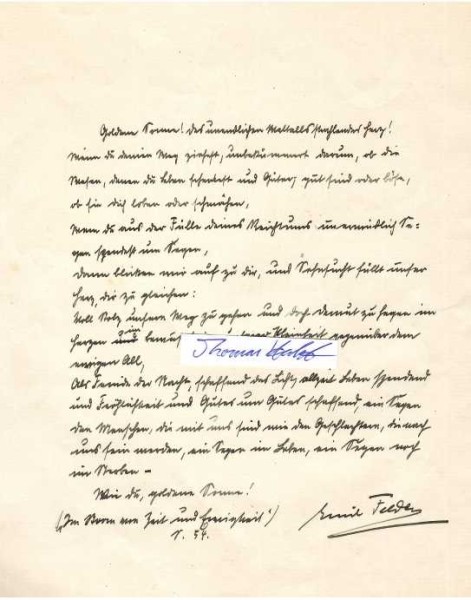 Goldene Sonne! des unendlichen Weltalls strahlendes Herz!
Wenn du deinen Weg ziehst, unbekümmert darum, ob die
Wesen, denen du Leben schenktest und Güter, gut sind oder böse,
ob sie dich loben oder schmähen,
Wenn du aus der Fülle deines Reichtums unermüdlich Se-
gen spendest um Segen,
Dann blicken wir auf zu dir, und Sehnsucht füllt unser
Herz, dir zu gleichen:
Voll Stolz unsern Weg zu gehen und doch Demut zu hegen im
Herzen und Kleinheit gegenüber dem
ewigen All,
Als Feinde der Nacht, schaffend das Licht, allzeit Leben spendend
und Fröhlichkeit und Gutes um Gutes schaffend, ein Segen
den Menschen, die mit uns sind wie den Geschlechtern, die nach
uns sein werden, ein Segen im Leben, ein Segen noch
im Sterben –
Wie du, goldene Sonne!
("Im Strom von Zeit und Ewigkeit")
S. 54.
Emil Felden
Thomas